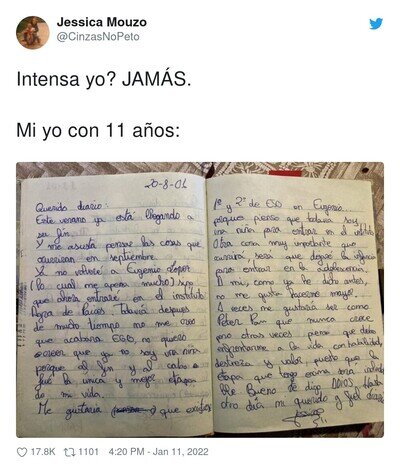 Jessica Mouzo
@CinzasNoPeto
Intensa yo? JAMÁS.
Mi yo con 11 años:
20-8-01
Querido diario:
Este verano ya está llegando a
su fin.
Y me asusta pensar las cosas que
ocurriran en septiembre.
Yo no volveré a Eugenio López
(lo cual me apena mucho) sino
que ahora entraré en el instituto
de Todavía después
de mucho tiempo no me creo
que acabara EGO, no quiero
creer que ya no soy una niña
porque al fin y al cabo
fue la única y mejor etapa
de mi vida.
Me gustaría que
1º y 2º de ESO en Eugenio...
porque pienso que todavía soy
una niña para entrar en el instituto
Otra cosa muy importante que
ocurrirá, será que dejaré la infancia
para entrar en la adolescencia.
A mi, como ya he dicho antes,
no me gusta hacerme mayor.
A veces me gustaría ser como
Peter Pan que nunca crece
pero otras veces pienso que debo
enfrentarme a la vida con habilidad,
destreza y valor puesto que la
etapa que tengo encima será
Bueno te digo ADIOS, hasta
otro día mi querido y fiel diario
17.8K 1101 4:20 PM - Jan 11, 2022